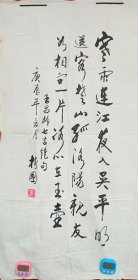 寒雨连江夜入吴平明
送客楚山孤洛阳亲友
如相问一片冰心在玉壶
王昌龄七言绝句
庚辰年